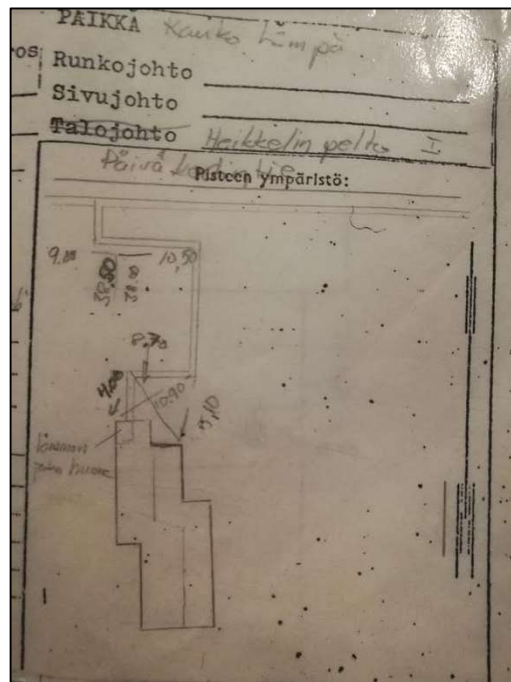 PAIKKA Kauko Lämpö
os
Runkojohto
Sivujohto
Talojohto Heikkelin pelto I
Pisteen ympäristö:
9.00
38,50
38.00
10,50
8.70
4,00
10.90
5,10